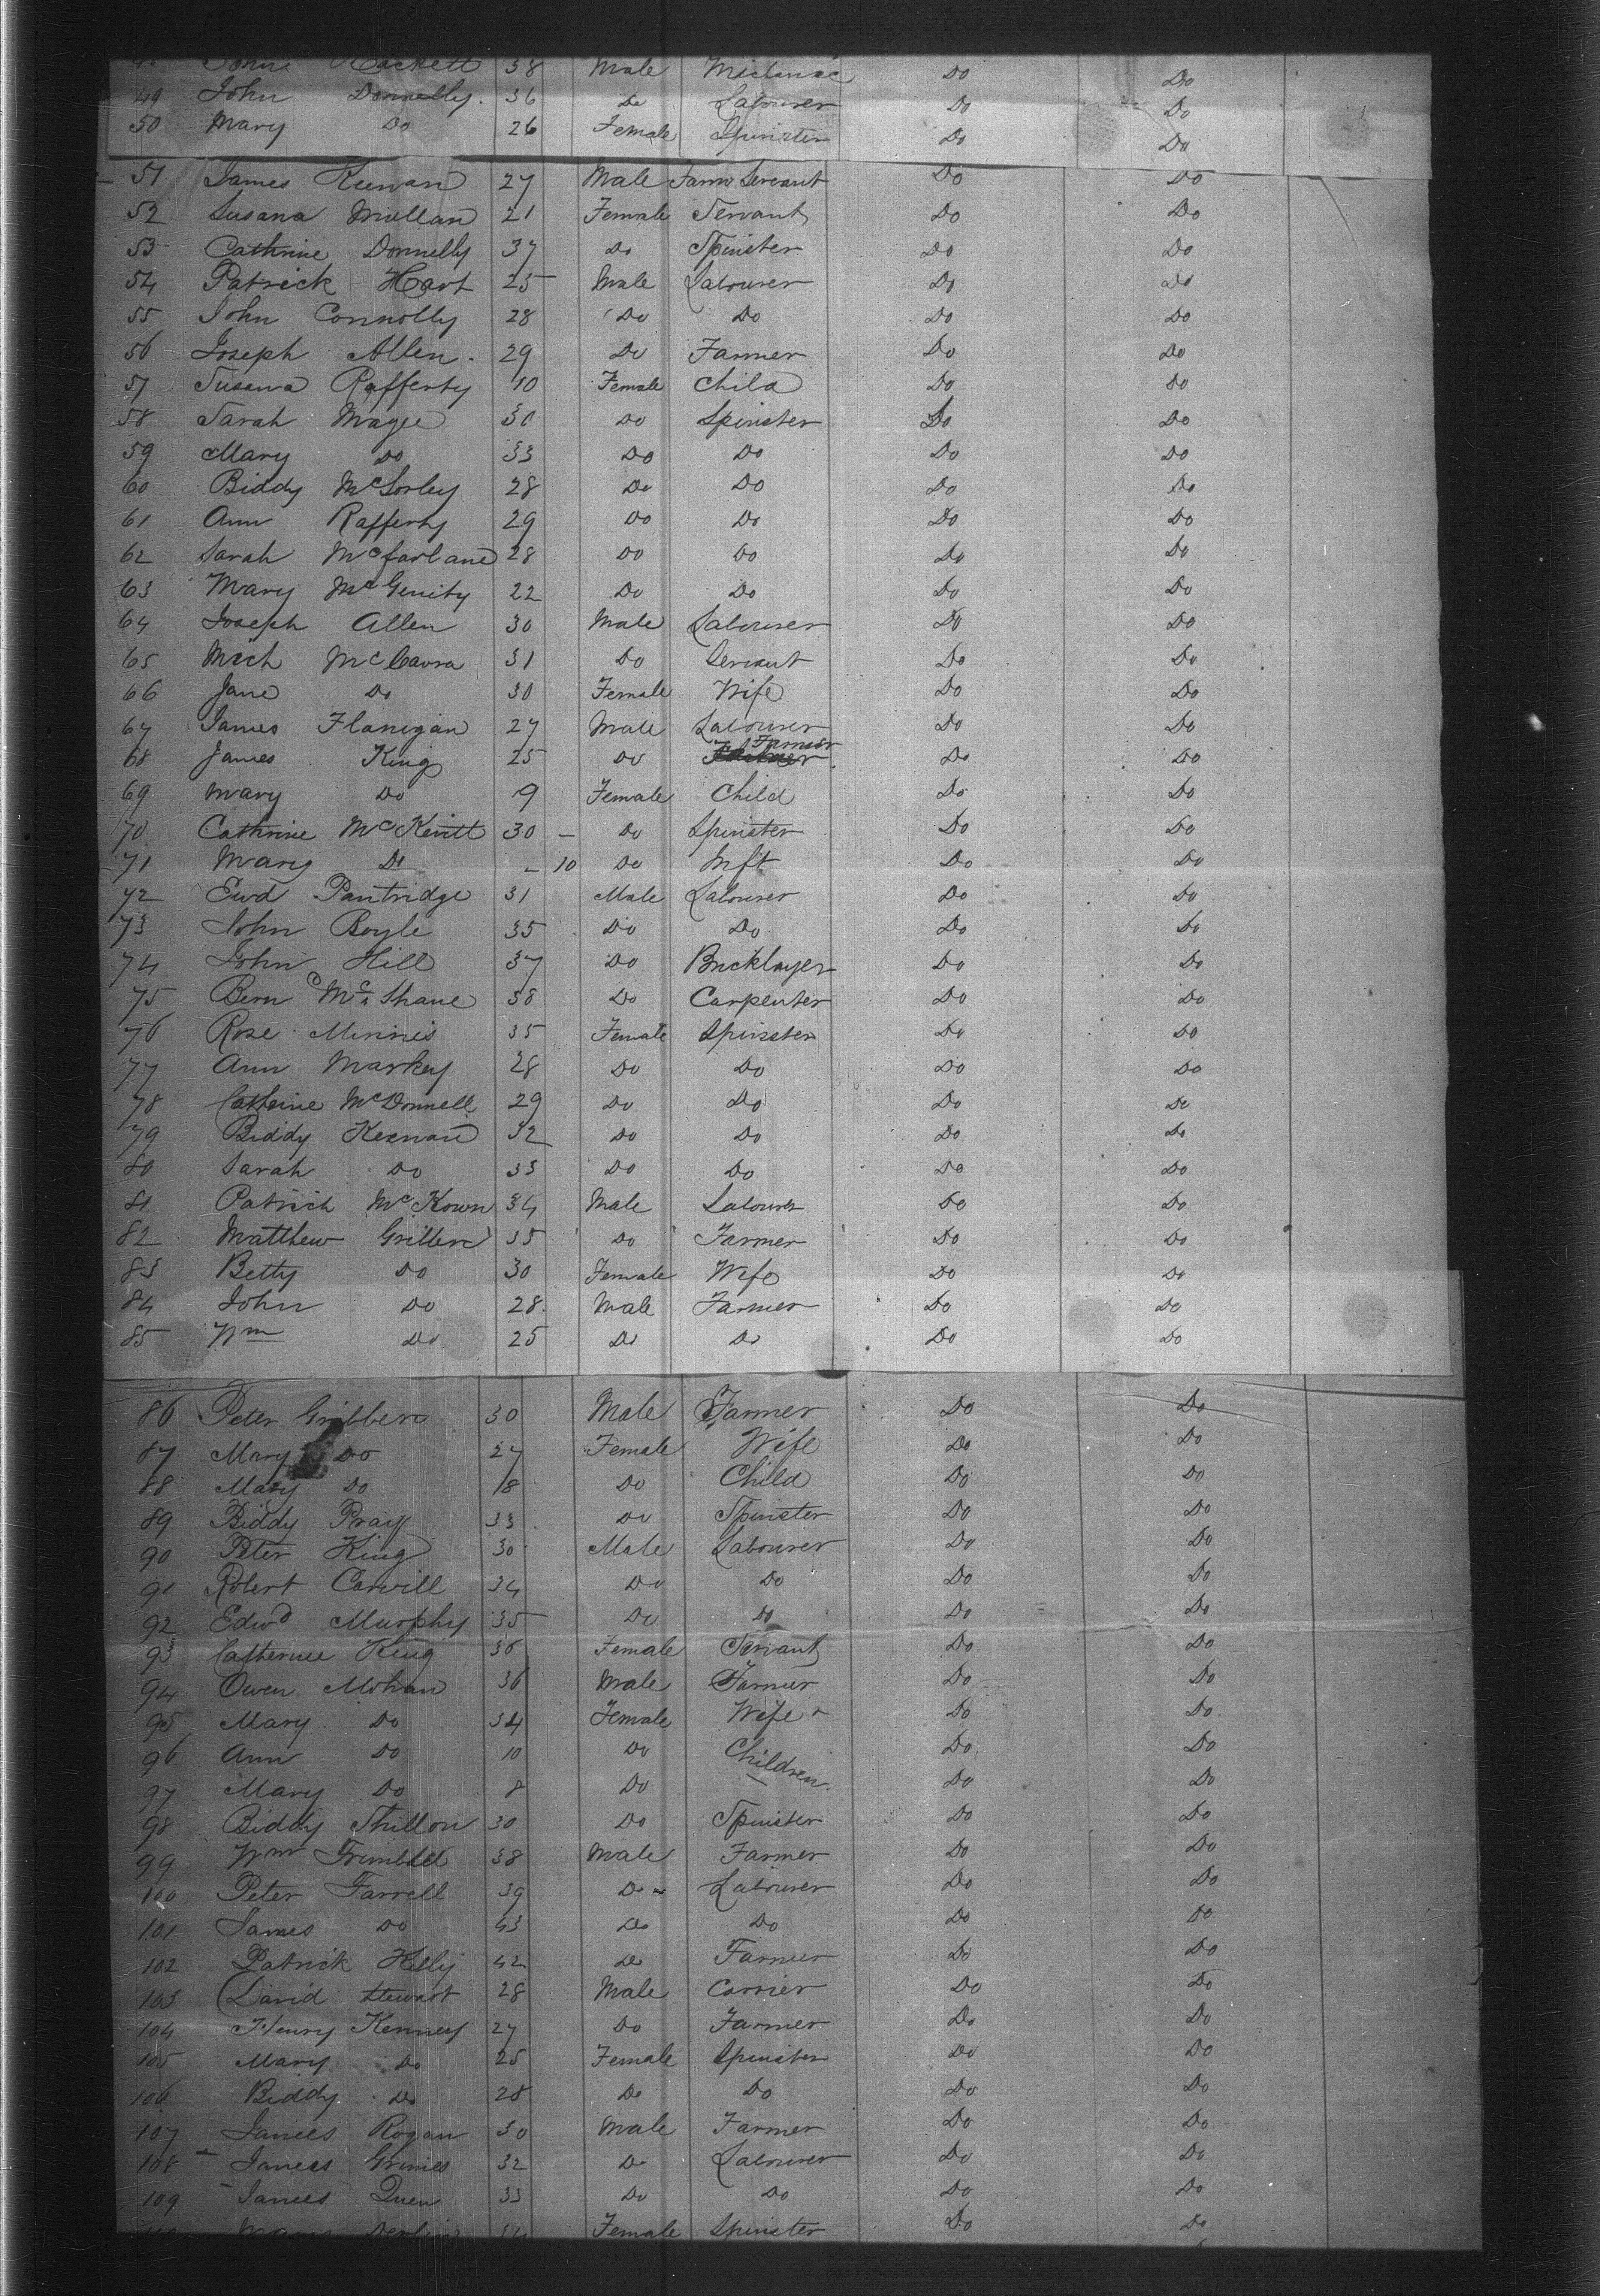 John Hackett 38 Male Mechanic Do Do
49 John Donnelly. 36 Do Labourer Do Do
50 Mary Do 26 Female Spinster Do Do
51 James Keenan 27 Male Farm Servant Do Do
52 Susana Mullan 21 Female Servant Do Do
53 Cathrine Donnelly 37 Do Spinster Do Do
54 Patrick Hart 25 Male Labourer Do Do
55 John Connolly 28 Do Do Do Do
56 Joseph Allen. 29 Do Farmer Do Do
57 Susana Rafferty 10 Female Child Do Do
58 Sarah Magee 30 Do Spinster Do Do
59 Mary Do 33 Do Do Do Do
60 Biddy McSorley 28 Do Do Do Do
61 Ann Rafferty 29 Do Do Do Do
62 Sarah Mcfarlane 28 Do Do Do Do
63 Mary McGenity 22 Do Do Do Do
64 Joseph Allen 30 Male Labourer Do Do
65 Mich McCavra 31 Do Servant Do Do
66 Jane Do 30 Female Wife Do Do
67 James Flanigan 27 Male Labourer Do Do
68 James King 25 Do Farmer Do Do
69 Mary Do 9 Female Child Do Do
70 Cathrine McKevitt 30 – Do Spinster Do Do
71 Mary Do – 10 Do Inft Do Do
72 Ewd Pantridge 31 Male Labourer Do Do
73 John Boyle 35 Do Do Do Do
74 John Hill 37 Do Bricklayer Do Do
75 Bern McShane 38 Do Carpenter Do Do
76 Rose Minnis 35 Female Spinster Do Do
77 Ann Markey 28 Do Do Do Do
78 Cathrine McDonnell 29 Do Do Do Do
79 Biddy Keenan 32 Do Do Do Do
80 Sarah Do 33 Do Do Do Do
81 Patrick McKown 34 Male Labourer Do Do
82 Matthew Gribben 35 Do Farmer Do Do
83 Betty Do 30 Female Wife Do Do
84 John Do 28 Male Farmer Do Do
85 Wm Do 25 Do Do Do Do
86 Peter Gribben 30 Male Farmer Do Do
87 Mary Do 27 Female Wife Do Do
88 Mary Do 8 Do Child Do Do
89 Biddy Pray 33 Do Spinster Do Do
90 Peter King 30 Male Labourer Do Do
91 Robert Carvill 34 Do Do Do Do
92 Edwd Murphy 35 Do Do Do Do
93 Catherine King 36 Female Servant Do Do
94 Owen Mohan 36 Male Farmer Do Do
95 Mary Do 34 Female Wife Do Do
96 Ann Do 10 Do Children Do Do
97 Mary Do 8 Do Do Do
98 Biddy Shillon 30 Do Spinster Do Do
99 Wm Trimble 38 Male Farmer Do Do
100 Peter Farrell 39 Do Labourer Do Do
101 James Do 43 Do Do Do Do
102 Patrick Kelly 42 Do Farmer Do Do
103 David Stewart 28 Male Carrier Do Do
104 Henry Kenney 27 Do Farmer Do Do
105 Mary Do 25 Female Spinster Do Do
106 Biddy Do 28 Do Do Do Do
107 James Rogan 30 Male Farmer Do Do
108 James Grimes 32 Do Labourer Do Do
109 James Quen 33 Do Do Do Do
Devlin Female Spinster Do Do